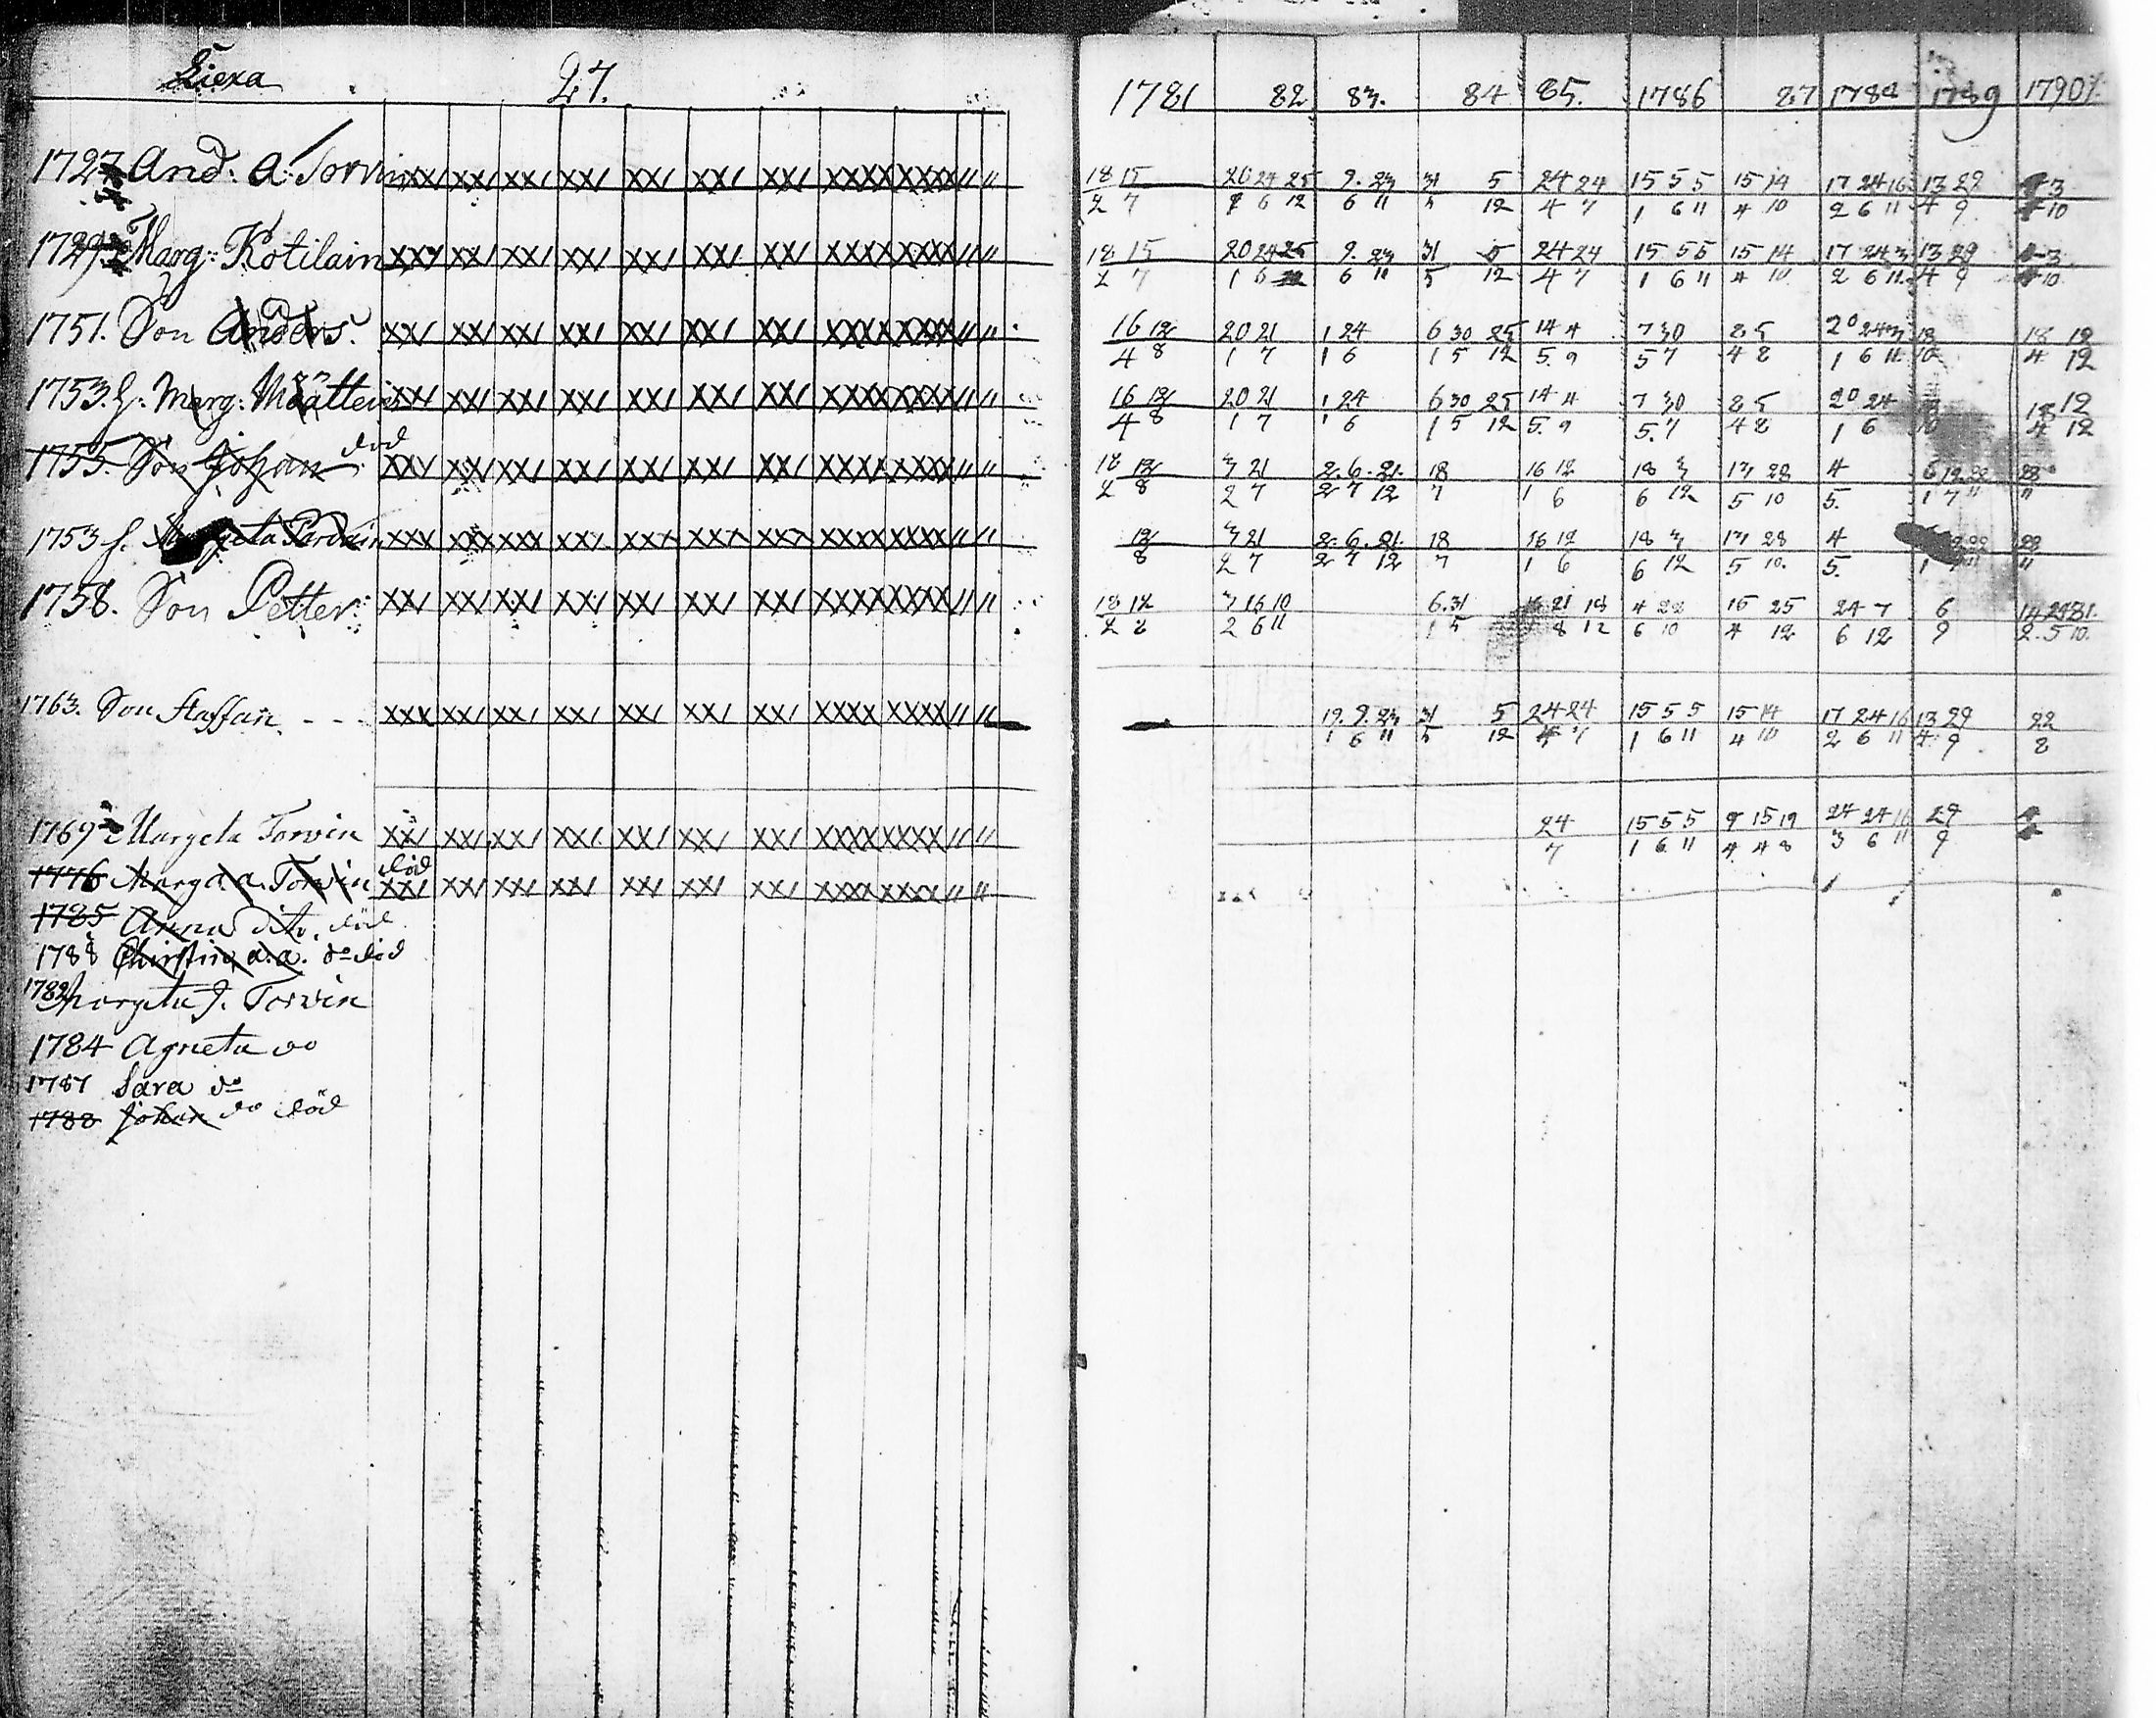 Liexa 27.
1781 82 83. 84 85. 1786 87 1788 1789 1790
1727 And: A: Torvin xx/ xx/ xx/ xx/ xx/ xx/ xx/ xxxx xxxx // // 18/2 15/7 20 24/6 25/12 9./6 23/11 31/5 5/12 24/4 24/7 15/1 5/6 5/11 15/4 14/10 17/2 24/6 16/11 13/4 29/9 3/10
1729 Marg: Kotilain xxx xx/ xx/ xx/ xx/ xx/ xx/ xxxx xxxx // // 18/2 15/7 20/1 24/6 25 9./6 23/11 31/5 5/12 24/4 24/7 15/1 5/6 5/11 15/4 14/10 17/2 24/6 3/11 13/4 29/9 3/10
1751. Son Anders. xx/ xx/ xx/ xx/ xx/ xx/ xx/ xxxx xxxx // // 16/4 12/8 20/1 21/7 1/1 24/6 6/1 30/5 25/12 14/5. 4/9 7/5 30/7 8/4 5/8 20/1 24/6 3/11 18/4 12/12
1753. H: Marg: Määttein xx/ xx/ xx/ xx/ xx/ xx/ xx/ xxxx xxxx // // 16/4 12/8 20/1 21/7 1/1 24/6 6/1 30/5 25/12 14/5. 4/9 7/5. 30/7 8/4 5/8 20/1 24/6 18/4 12/12
1755. Son Johan död xx/ xx/ xx/ xx/ xx/ xx/ xx/ xxxx xxxx // // 18/2 12/8 3/2 21/7 2./2 6./7 21./12 18/7 16/1 12/6 18/6 3/12 13/5 28/10 4/5. 6/1 19/7 22/11 28/11
1753 h. xxx xxx xxx xx/ xx/ xx/ xx/ xxxx xxxx // // 12/8 3/2 21/7 2./2 6./7 21./12 18/7 16/1 12/6 18/6 3/12 13/5 28/10. 4/5. 28/11
1758. Son Petter xx/ xx/ xx/ xx/ xx/ xx/ xx/ xxxx xxxx // // 18/2 12/8 3/2 16/6 10/11 6./1 31/5 21/8 18/12 4/6 22/10 15/4 25/12 24/6 7/12 6/9 14/2. 24/5 31./10.
1763. Son Staffan xxx xx/ xx/ xx/ xx/ xx/ xx/ xxxx xxxx // // 19./1 9./6 23/11 31/5 5/12 24/4 24/7 15/1 5/6 5/11 15/4 14/10 17/2 24/6 16/11 13/4 29/9 22/8
1769 Margeta Torvin xx/ xx/ xx/ xx/ xx/ xx/ xx/ xxxx xxxx // // 24/7 15/1 5/6 5/11 9/4 15/4 19/8 24/3 24/6 16/11 29/9
1776 Marg a. a. Torvin död xx/ xx/ xx/ xx/ xx/ xx/ xx/ xxxx xxxx // //
1785 Anna dito. död
1788 Christina a.a. do död
1782 Margeta J. Torvin
1784 Agneta do
1787 Sara do
1788 Johan do död